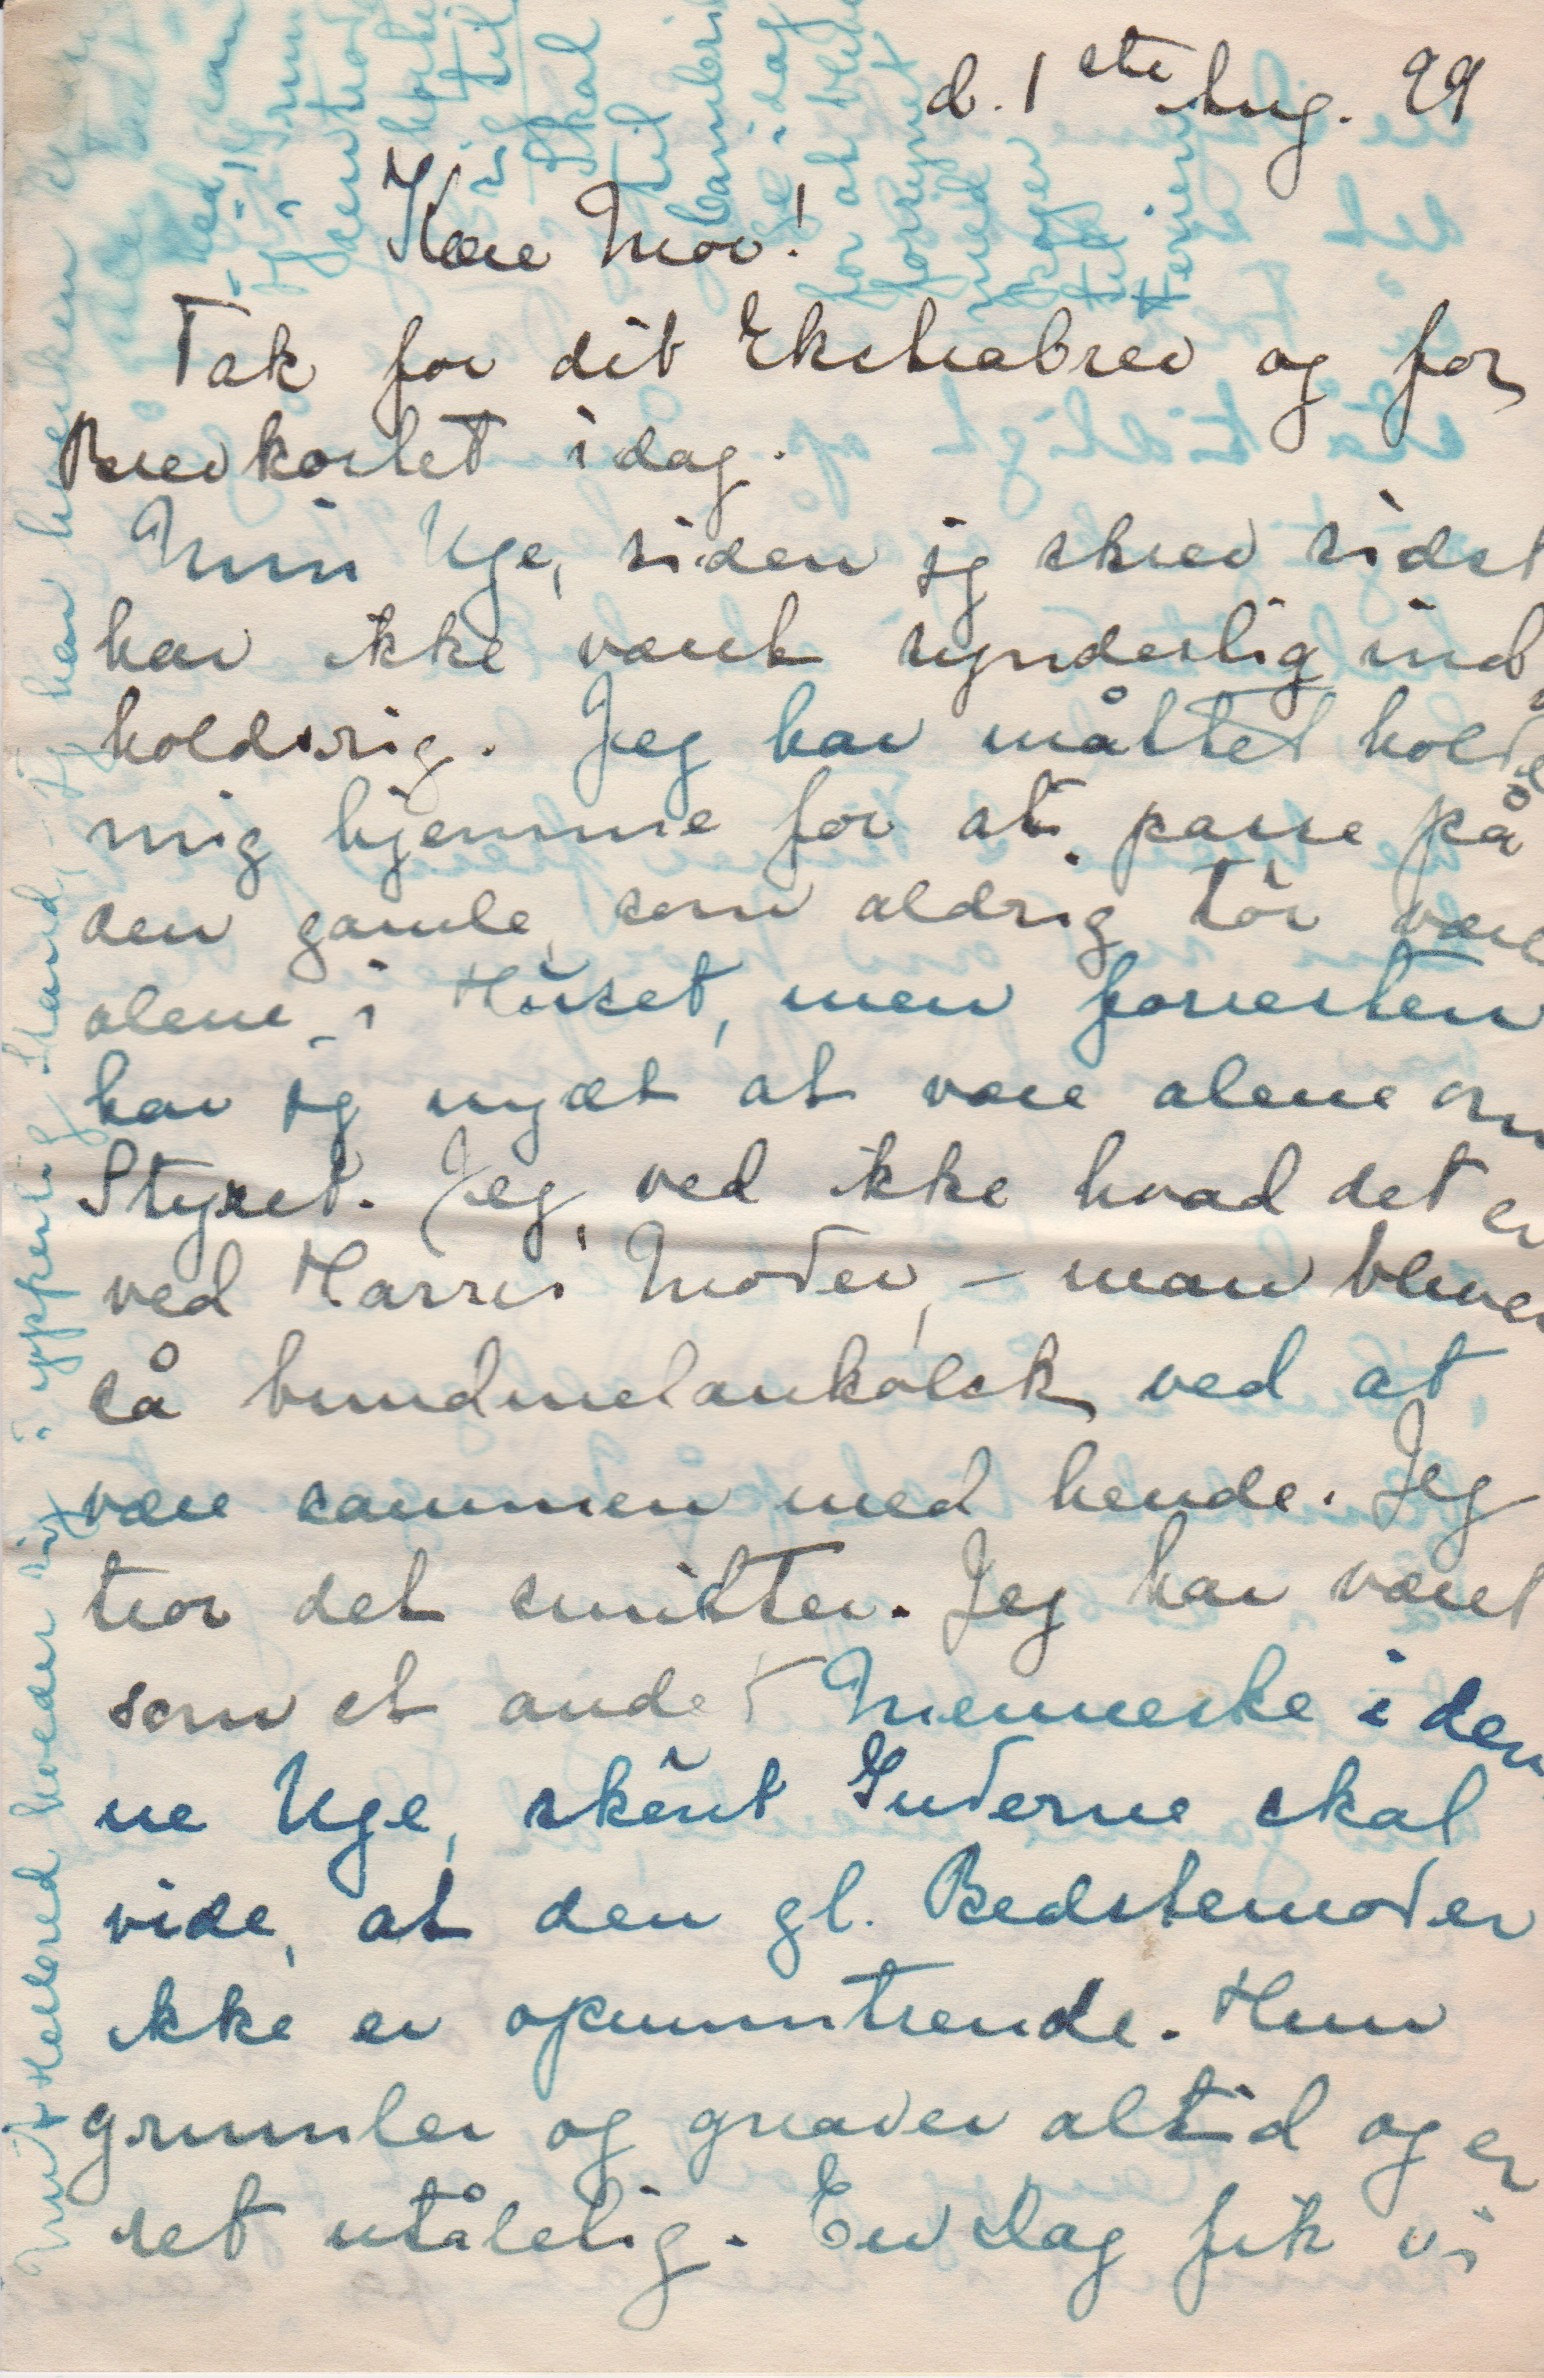 d. 1ste Aug. 99
Kære Mor!
Tak for dit Ekstrabrev og for
Brevkortet idag.
Min Uge, siden jg skrev sidst
har ikke været synderlig ind
holdsrig. Jeg har måttet holde
mig hjemme for at passe på
den gamle, som aldrig tör være
alene i Huset, men forresten
har jg nydt at være alene om
Styret. Jeg ved ikke hvad det er
ved Harris Moder, – man bliver
så bundmelankolsk ved at
være sammen med hende. Jeg
tror det smitter. Jeg har været
som et andet Menneske i den
ne Uge, skönt Guderne skal
vide, at den gl. Bedstemoder
ikke er opmuntrende. Hun
grumler og gnaver altid og er
ret utålelig. En Dag fik vi
Mit Helbred holder sig i ypperlig Stand, jg har
Skal
til
idag
for at blive
forsynet
med
til